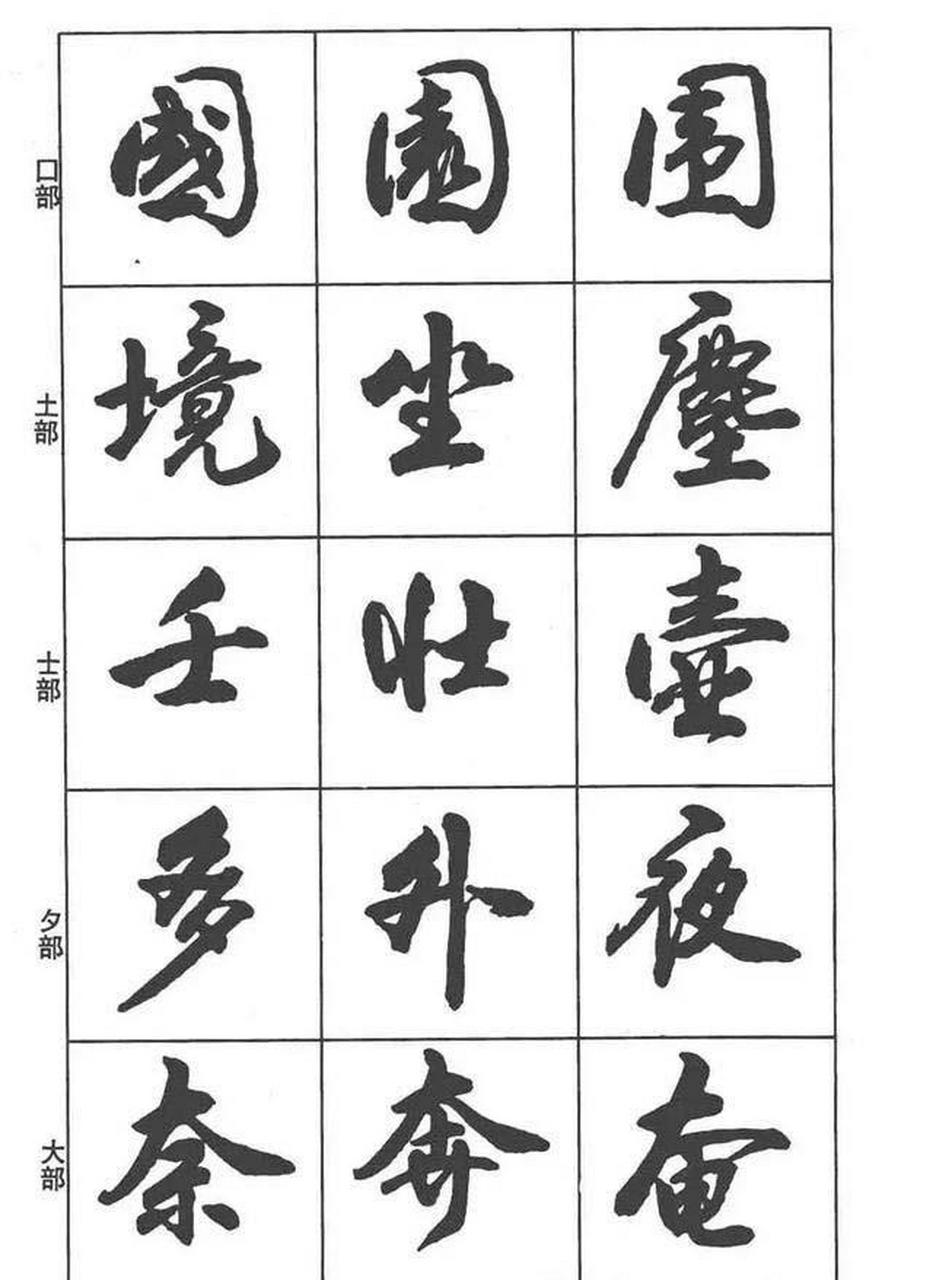 口部 國 園 围
土部 境 坐 塵
士部 壬 壮 壺
夕部 多 外 夜
大部 奈 奔 奄